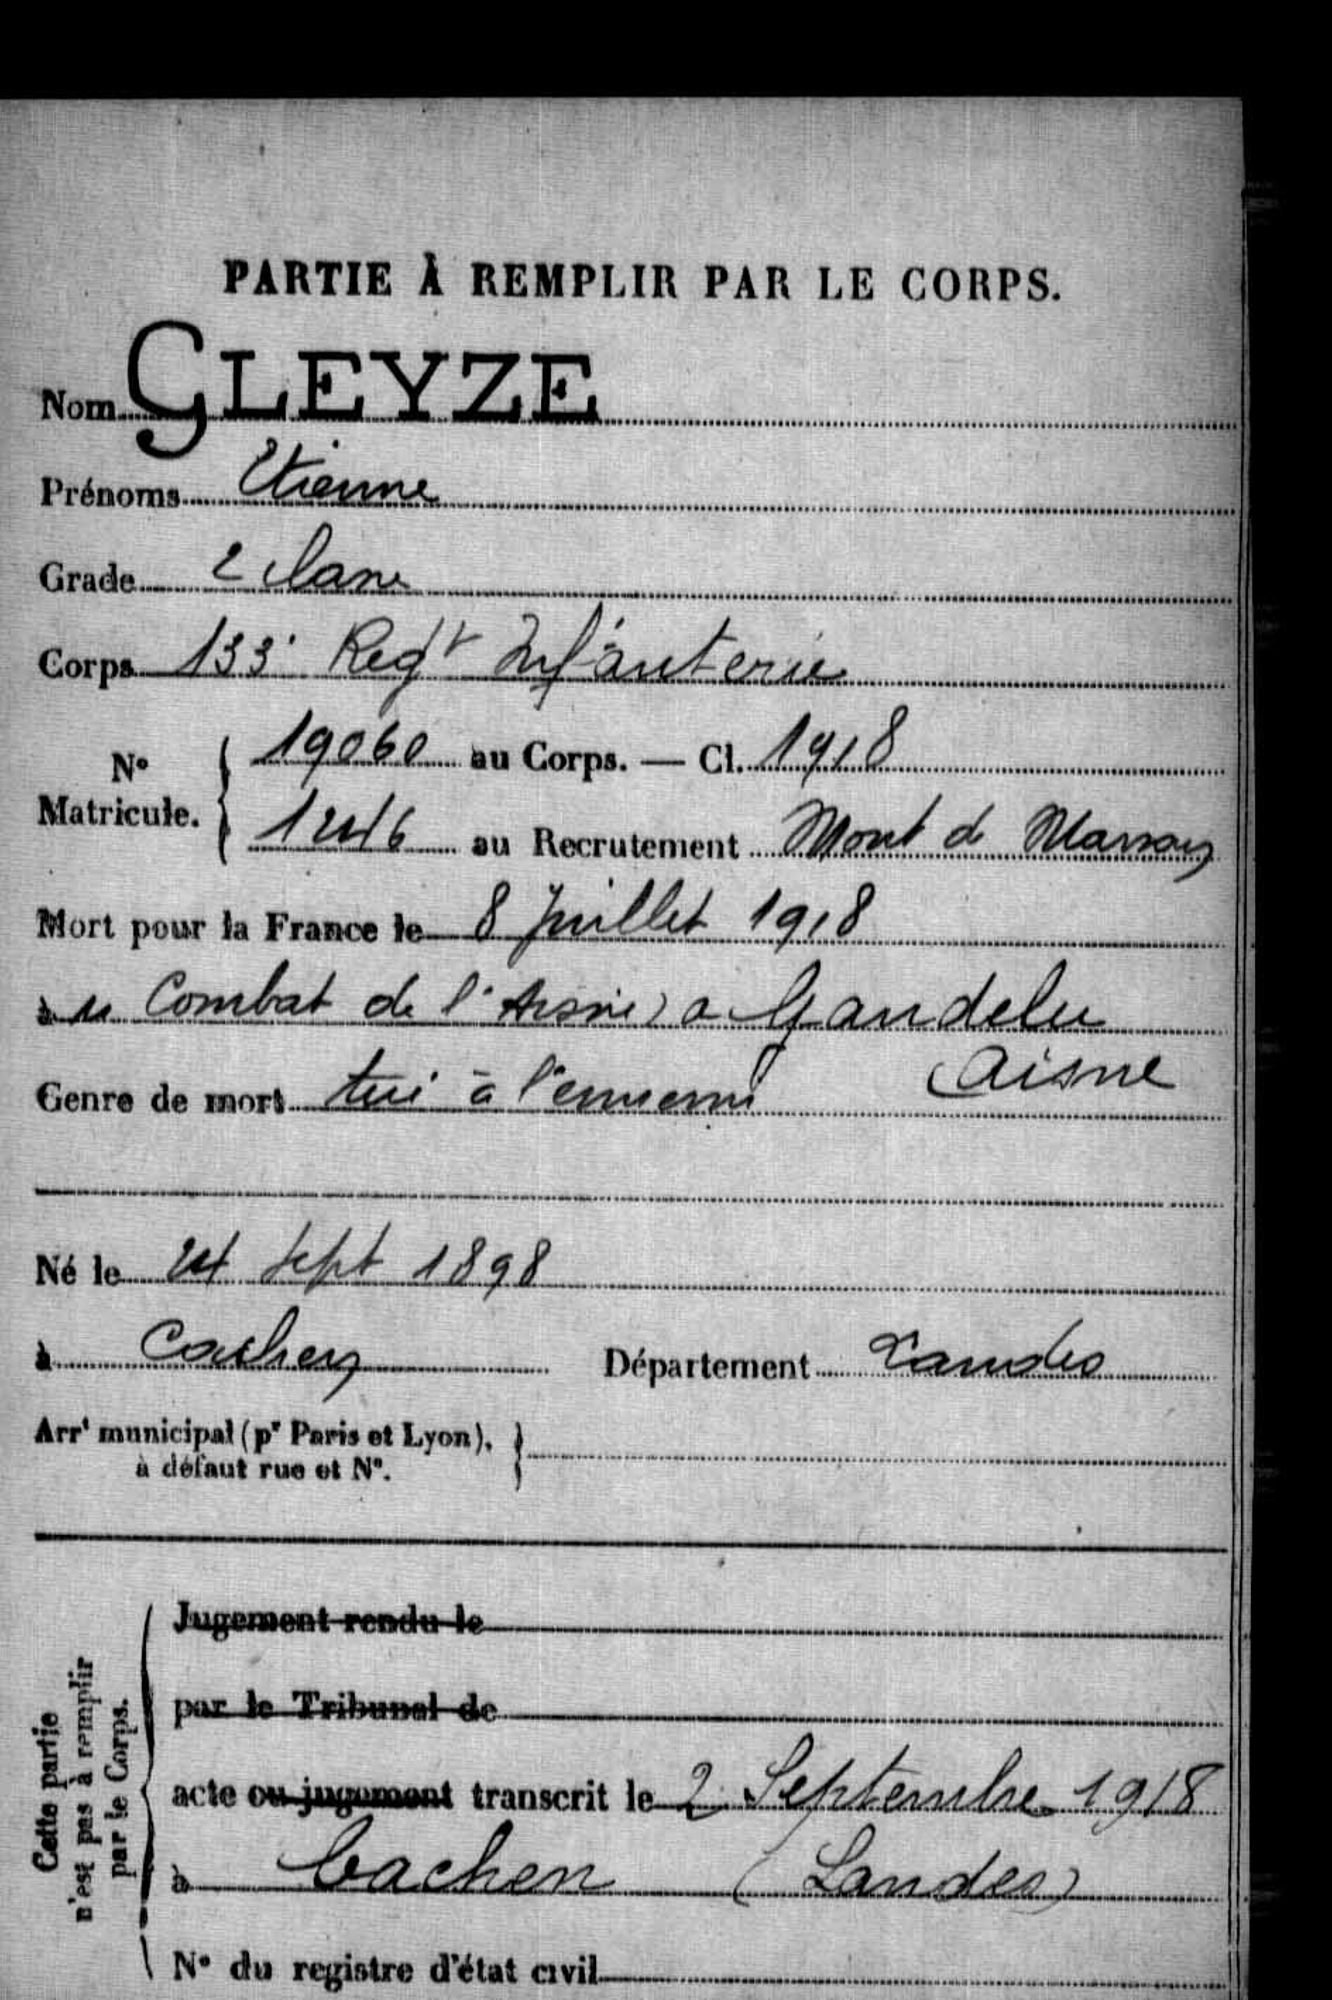 PARTIE À REMPLIR PAR LE CORPS.
Nom GLEYZE
Prénoms Etienne
Grade 2 classe
Corps 133e Regt Infanterie
No Matricule. { 19060 au Corps. — Cl. 1918
1246 au Recrutement Mont de Marsan
Mort pour la France le 8 Juillet 1918
à Combat de l'Aisne) a Gandelu
(Aisne
Genre de mort tué à l'ennemi
Né le 24 Sept 1898
à Cachen Département Landes
Arrt municipal (pr Paris et Lyon), }
à défaut rue et No.
Cette partie
n'est pas à remplir
par le Corps.
Jugement rendu le
par le Tribunal de
acte ou jugement transcrit le 2 Septembre 1918
à Cachen (Landes)
No du registre d'état civil